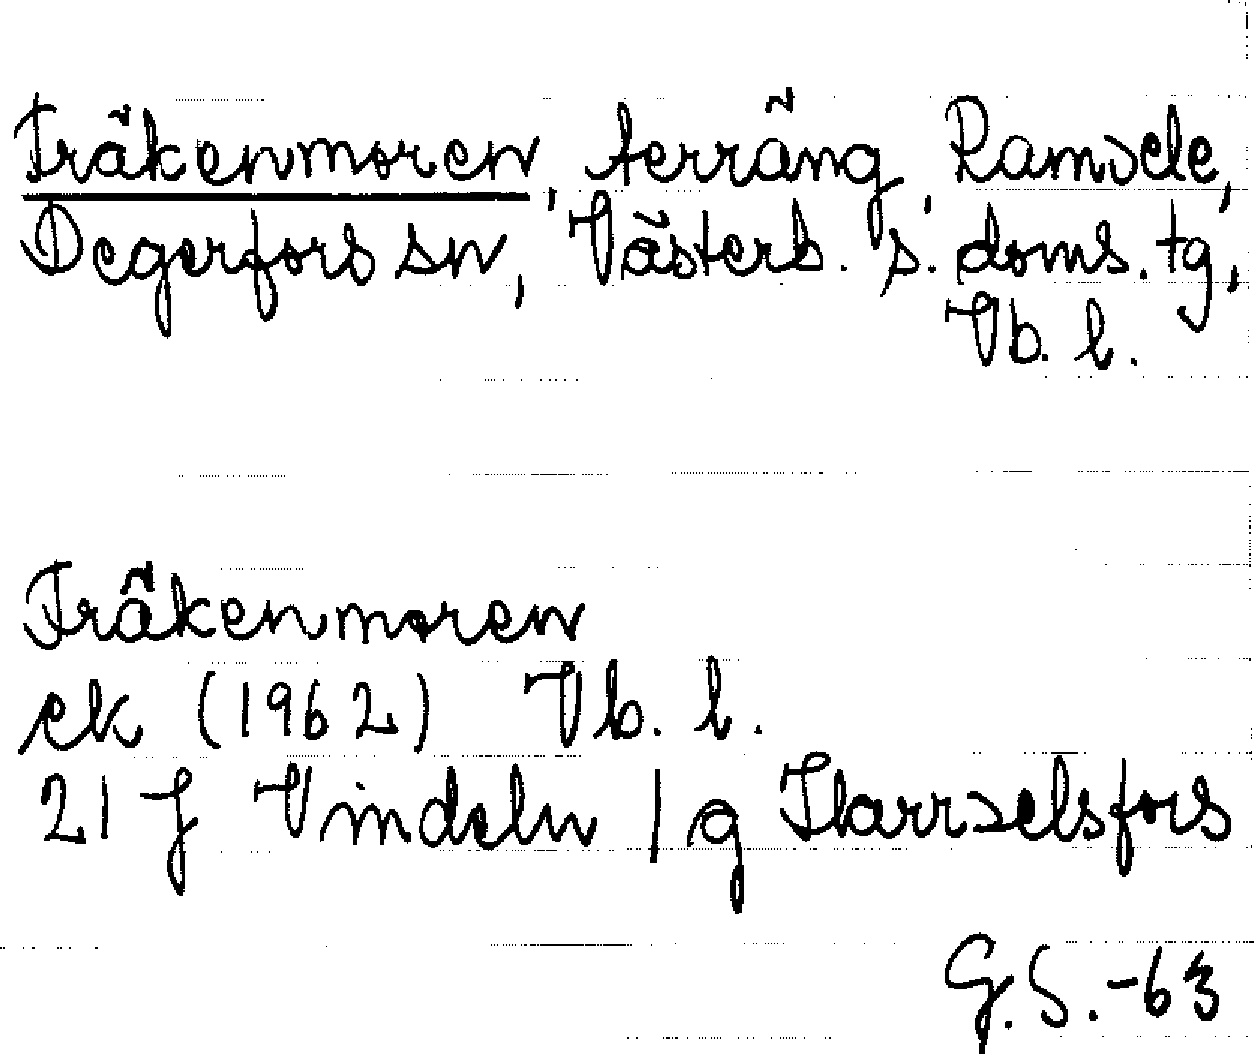 Fräkenmoren, terräng, Ramsele,
Degerfors sn, Västerb. s. doms. tg,
Vb. l.
Fräkenmoren
ek (1962) Vb. l.
21 J Vindeln 1 g Harrselsfors
G.S.-63